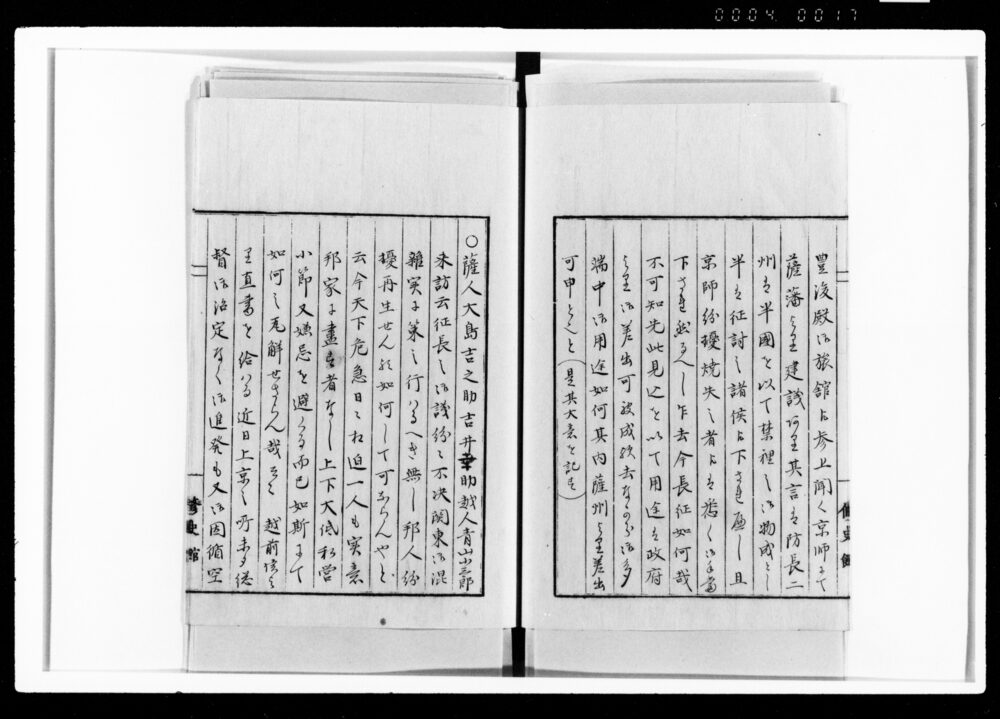 0004 0017
豊後殿御旅館ヘ参上聞く京師にて
薩藩より建議ありその言は防長二
州を半國を以て禁裡之御物成とし
半は征討之諸侯ヘ下され度し且
京師紛擾焼失之者ヘは悉く御手當
下され然るへし乍去今長征如何哉
不可知先此見込を以て用途を政府
より御差出可被成候去なから御多
端中御用途如何其内薩州より差出
可申とそと(是其大意を記す)
修史館
○薩人大島吉之助吉井幸助越人青山小三郎
来訪云征長之御議紛々不决関東御混
雑実に策之行はるへき無し邦人紛
擾再生せん於如何して可ならんやと
云今天下危急日々相迫一人も実意
邦家に盡す者なし上下大低私営
小節又嫌忌を避くる而已如斯にて
如何之瓦解せさらん哉とそ越前侯よ
り直書を給はる近日上京之所未タ總
督御治定なく御進発も又御因循空
修史館